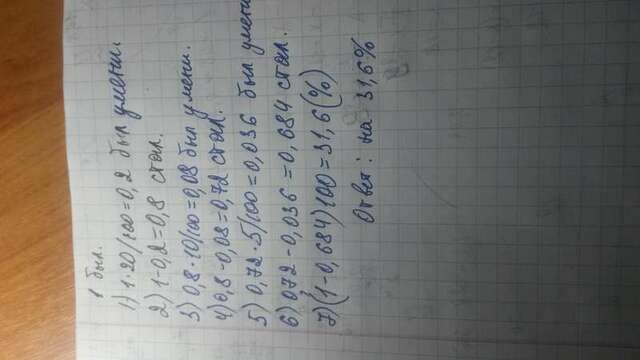 1 был.
1) 1·20/100=0,2 был уменш.
2) 1-0,2=0,8 стал.
3) 0,8·10/100=0,08 был умени.
4) 0,8-0,08=0,72 стал.
5) 0,72·5/100=0,036 был умени
6) 072-0,036=0,684 стал.
7) (1-0,684)100=31,6(%)
Ответ: на 31,6%